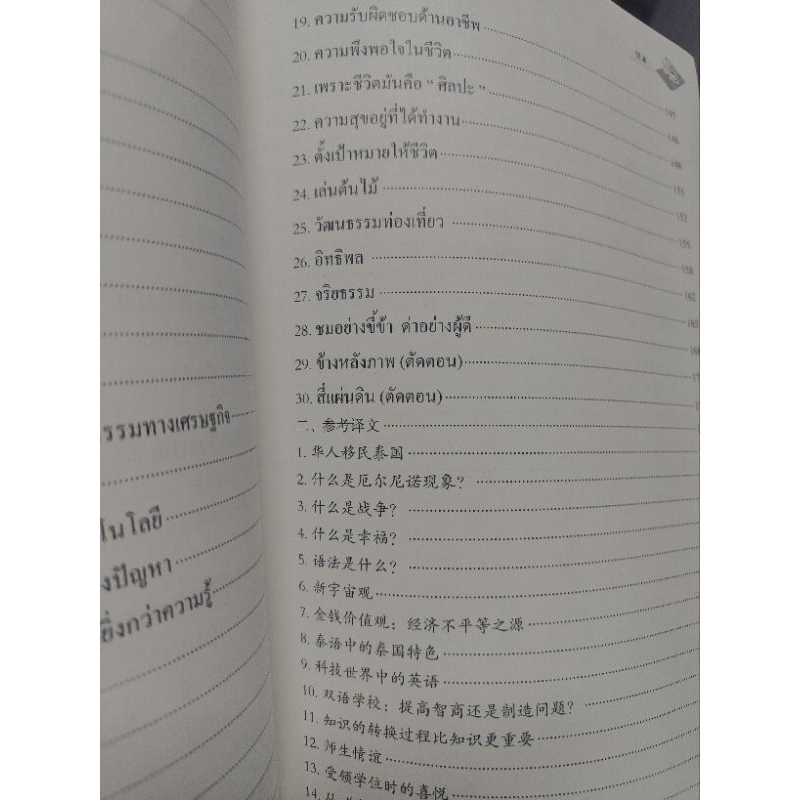 รรมทางเศรษฐกิจ
โนโลยี
งปัญหา
ยิ่งกว่าความรู้
19. ความรับผิดชอบด้านอาชีพ 145
20. ความพึงพอใจในชีวิต 146
21. เพราะชีวิตมันคือ “ ศิลปะ ”
22. ความสุขอยู่ที่ได้ทำงาน 151
23. ตั้งเป้าหมายให้ชีวิต
24. เล่นต้นไม้ 155
25. วัฒนธรรมท่องเที่ยว
26. อิทธิพล 162
27. จริยธรรม 165
28. ชมอย่างขี้ข้า ด่าอย่างผู้ดี
29. ข้างหลังภาพ (ตัดตอน)
30. สี่แผ่นดิน (ตัดตอน)
二、参考译文
1. 华人移民泰国
2. 什么是厄尔尼诺现象？
3. 什么是战争？
4. 什么是幸福？
5. 语法是什么？
6. 新宇宙观
7. 金钱价值观：经济不平等之源
8. 泰语中的泰国特色
9. 科技世界中的英语
10. 双语学校：提高智商还是制造问题？
11. 知识的转换过程比知识更重要
12. 师生情谊
13. 受领学位时的喜悦
14.